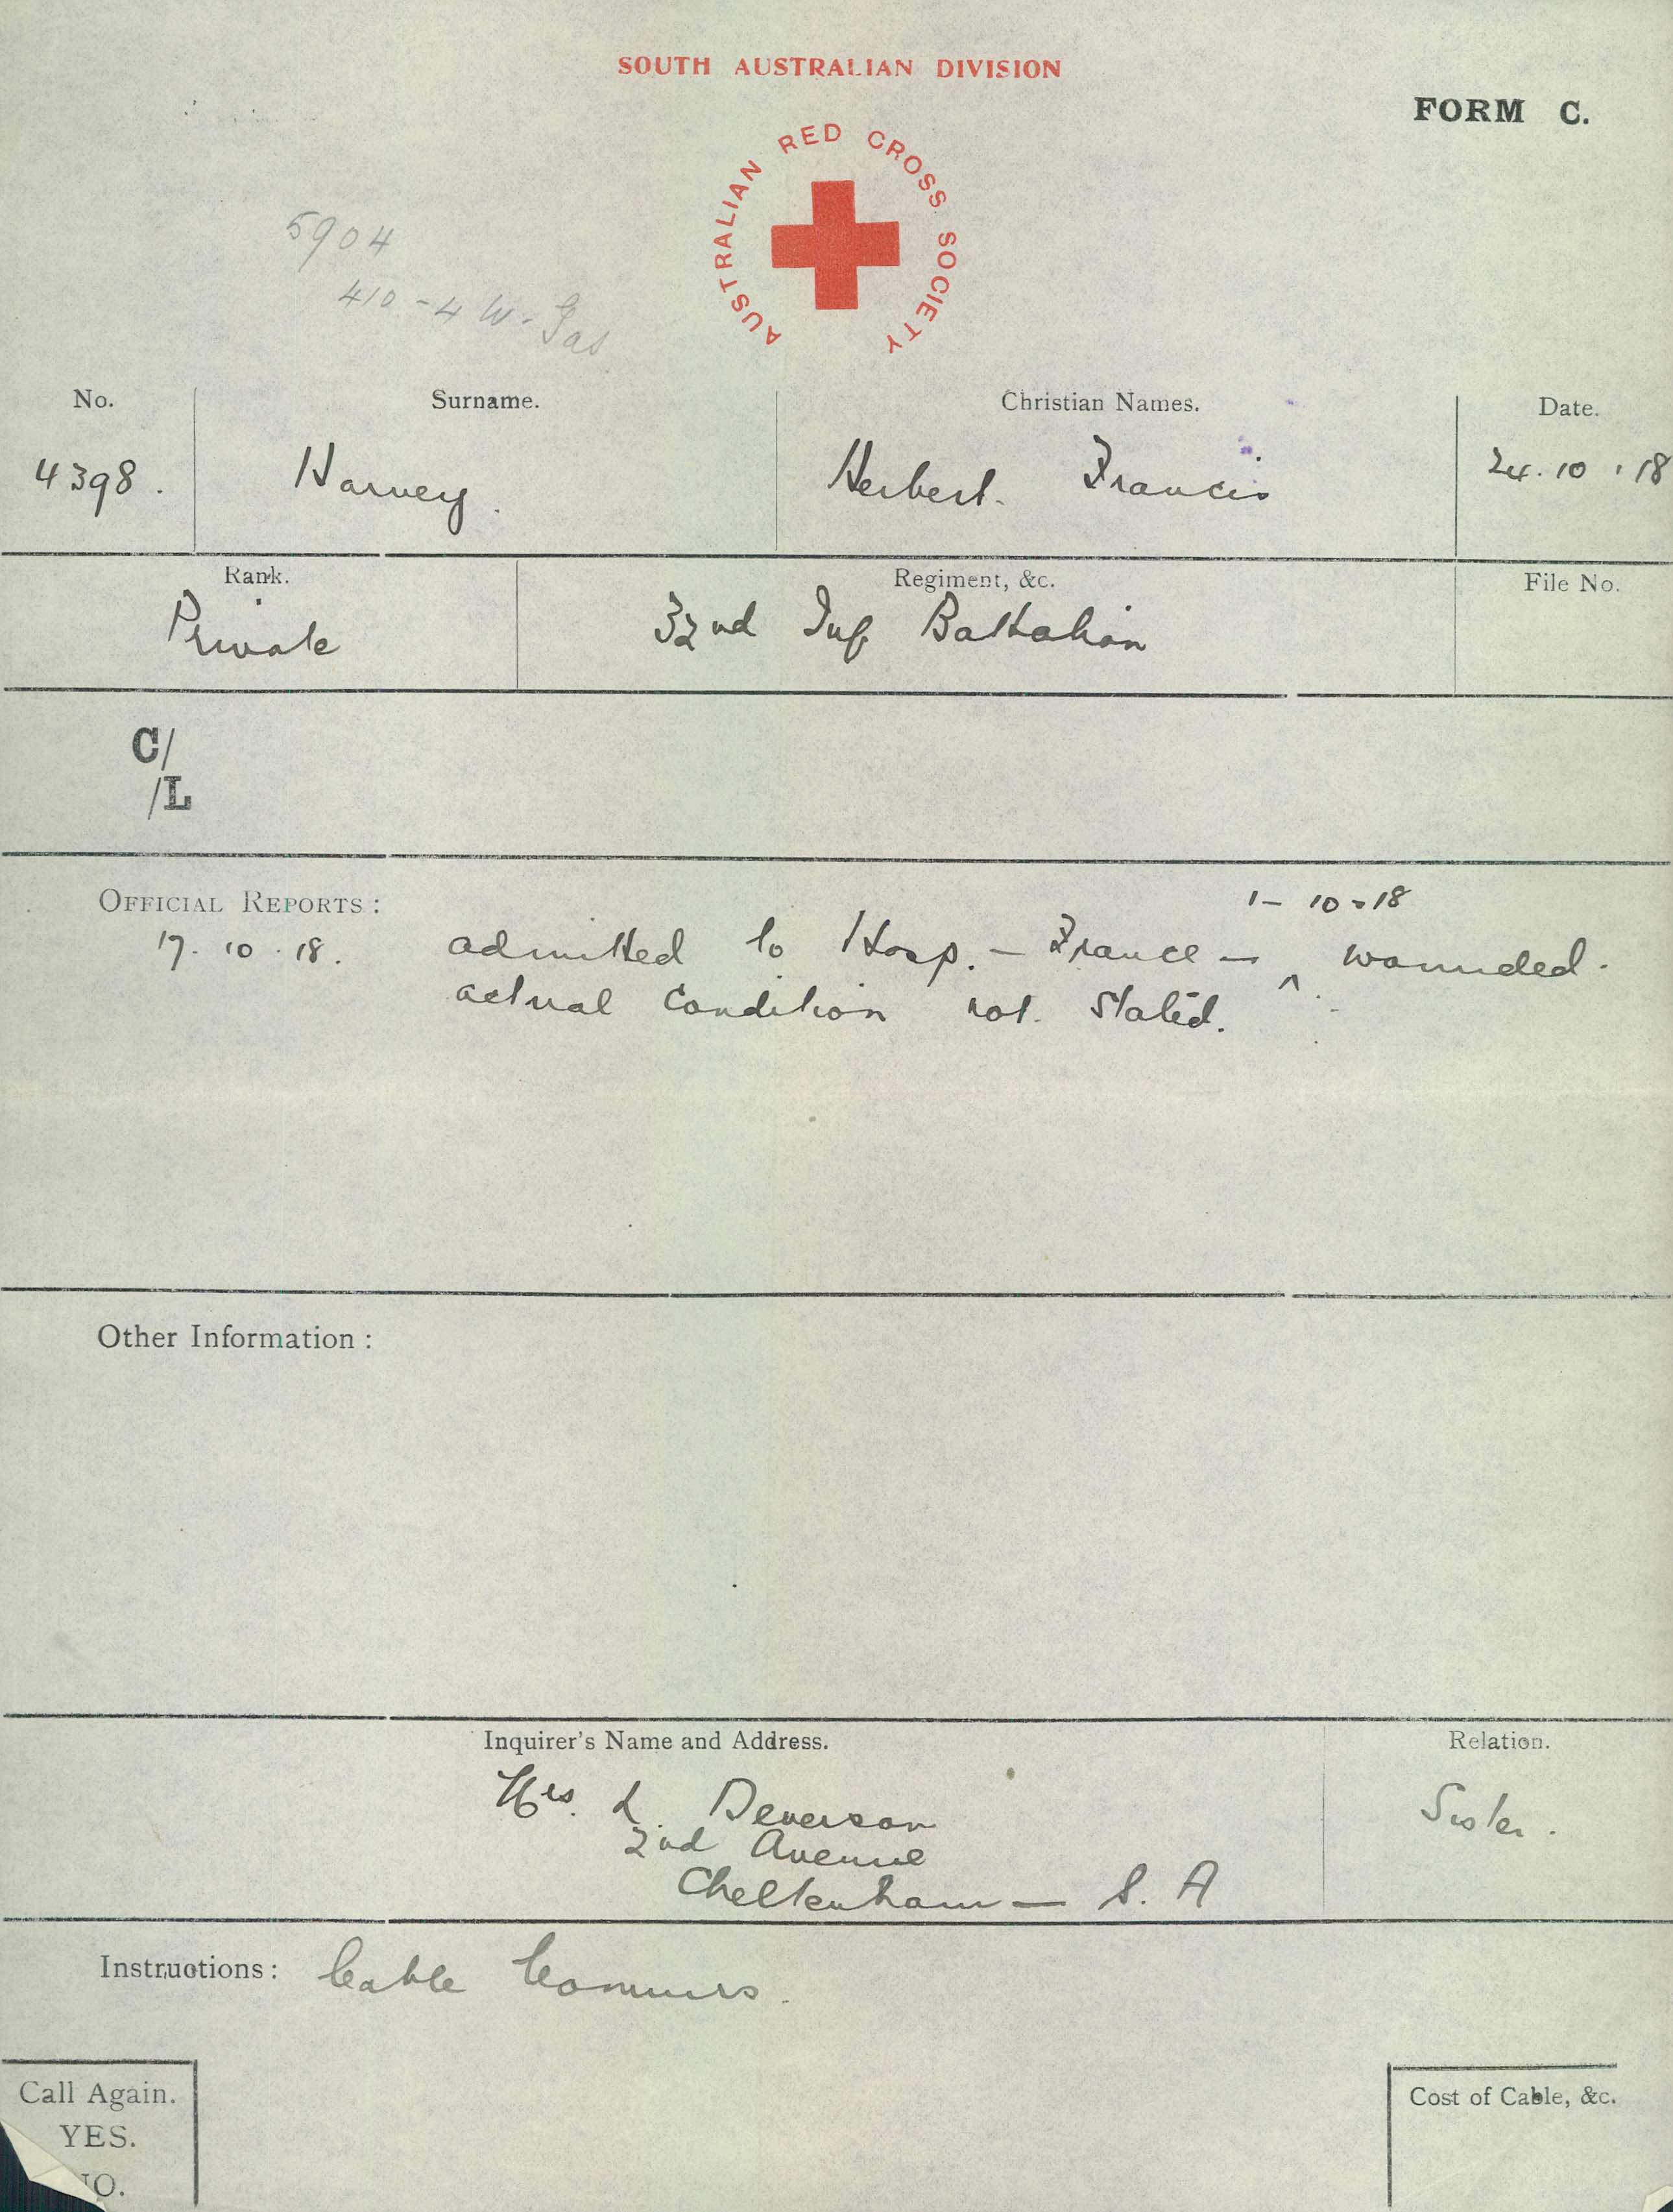 SOUTH AUSTRALIAN DIVISION
FORM C.
AUSTRALIAN RED CROSS SOCIETY
5904
410-4 W. Gas
No. Surname. Christian Names. Date.
4398. Harvey. Herbert. Francis 24.10.18
Rank. Regiment, &c. File No.
Private 32nd Inf Battalion
C/
/L
OFFICIAL REPORTS:
1-10-18
17.10.18. admitted to Hosp. - France - ^ wounded.
actual condition not stated.
Other Information:
Inquirer's Name and Address. Relation.
Mrs. L. Deverson Sister.
2nd Avenue
Cheltenham - S. A
Instructions: Cable Commrs.
Call Again. Cost of Cable, &c.
YES.
NO.